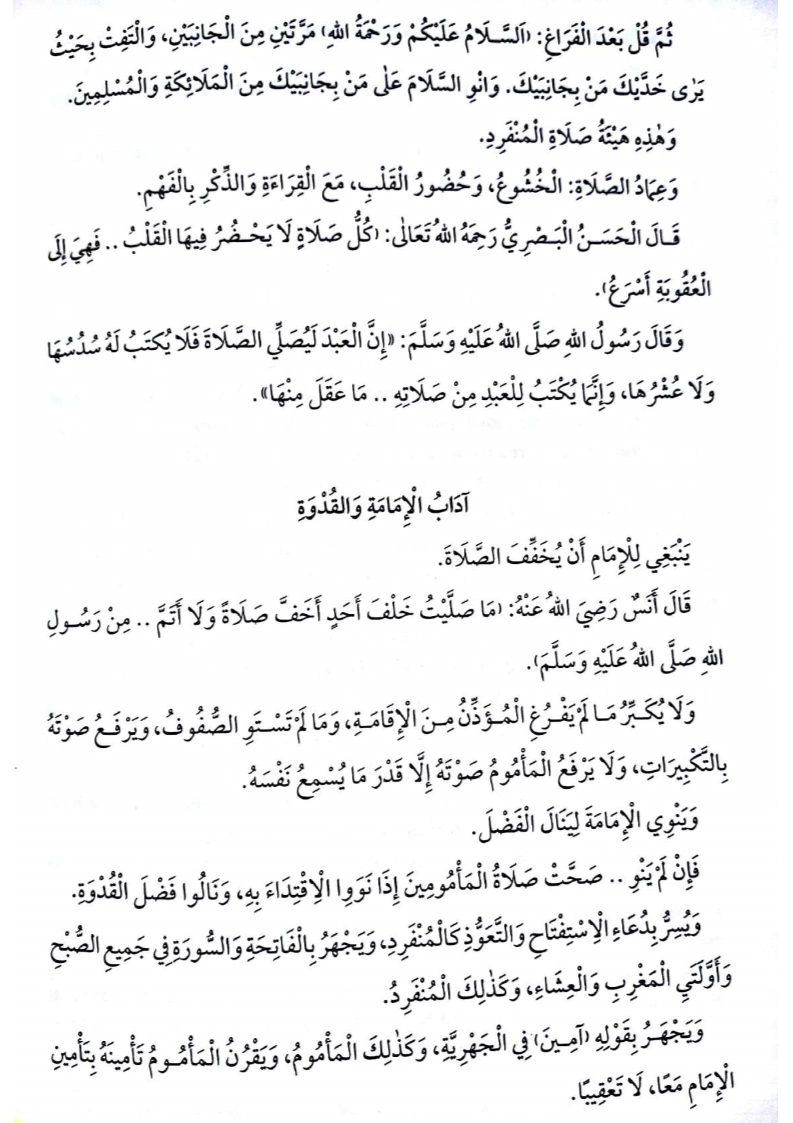 ثُمَّ قُلْ بَعْدَ الْفَرَاغِ: (اَلسَّلَامُ عَلَيْكُمْ وَرَحْمَةُ اللهِ) مَرَّتَيْنِ مِنَ الْجَانِبَيْنِ، وَالْتَفِتْ بِحَيْثُ
يَرٰى خَدَّيْكَ مَنْ بِجَانِبَيْكَ. وَانْوِ السَّلَامَ عَلٰى مَنْ بِجَانِبَيْكَ مِنَ الْمَلَائِكَةِ وَالْمُسْلِمِينَ.
وَهٰذِهِ هَيْئَةُ صَلَاةِ الْمُنْفَرِدِ.
وَعِمَادُ الصَّلَاةِ: الْخُشُوعُ، وَحُضُورُ الْقَلْبِ، مَعَ الْقِرَاءَةِ وَالذِّكْرِ بِالْفَهْمِ.
قَالَ الْحَسَنُ الْبَصْرِيُّ رَحِمَهُ اللهُ تَعَالٰى: (كُلُّ صَلَاةٍ لَا يَحْضُرُ فِيهَا الْقَلْبُ .. فَهِيَ إِلَى
الْعُقُوبَةِ أَسْرَعُ).
وَقَالَ رَسُولُ اللهِ صَلَّى اللهُ عَلَيْهِ وَسَلَّمَ: «إِنَّ الْعَبْدَ لَيُصَلِّي الصَّلَاةَ فَلَا يُكْتَبُ لَهُ سُدُسُهَا
وَلَا عُشْرُهَا، وَإِنَّمَا يُكْتَبُ لِلْعَبْدِ مِنْ صَلَاتِهِ .. مَا عَقَلَ مِنْهَا».
آدَابُ الْإِمَامَةِ وَالقُدْوَةِ
يَنْبَغِي لِلْإِمَامِ أَنْ يُخَفِّفَ الصَّلَاةَ.
قَالَ أَنَسٌ رَضِيَ اللهُ عَنْهُ: (مَا صَلَّيْتُ خَلْفَ أَحَدٍ أَخَفَّ صَلَاةً وَلَا أَتَمَّ .. مِنْ رَسُولِ
اللهِ صَلَّى اللهُ عَلَيْهِ وَسَلَّمَ).
وَلَا يُكَبِّرُ مَا لَمْ يَفْرُغِ الْمُؤَذِّنُ مِنَ الْإِقَامَةِ، وَمَا لَمْ تَسْتَوِ الصُّفُوفُ، وَيَرْفَعُ صَوْتَهُ
بِالتَّكْبِيرَاتِ، وَلَا يَرْفَعُ الْمَأْمُومُ صَوْتَهُ إِلَّا قَدْرَ مَا يُسْمِعُ نَفْسَهُ.
وَيَنْوِي الْإِمَامَةَ لِيَنَالَ الْفَضْلَ.
فَإِنْ لَمْ يَنْوِ .. صَحَّتْ صَلَاةُ الْمَأْمُومِينَ إِذَا نَوَوا الِاقْتِدَاءَ بِهِ، وَنَالُوا فَضْلَ الْقُدْوَةِ.
وَيُسِرُّ بِدُعَاءِ الِاسْتِفْتَاحِ وَالتَّعَوُّذِ كَالْمُنْفَرِدِ، وَيَجْهَرُ بِالْفَاتِحَةِ وَالسُّورَةِ فِي جَمِيعِ الصُّبْحِ
وَأَوَّلَتَيِ الْمَغْرِبِ وَالْعِشَاءِ، وَكَذٰلِكَ الْمُنْفَرِدُ.
وَيَجْهَرُ بِقَوْلِهِ (آمِينَ) فِي الْجَهْرِيَّةِ، وَكَذٰلِكَ الْمَأْمُومُ، وَيَقْرُنُ الْمَأْمُومُ تَأْمِينَهُ بِتَأْمِينِ
الْإِمَامِ مَعًا، لَا تَعْقِيبًا.